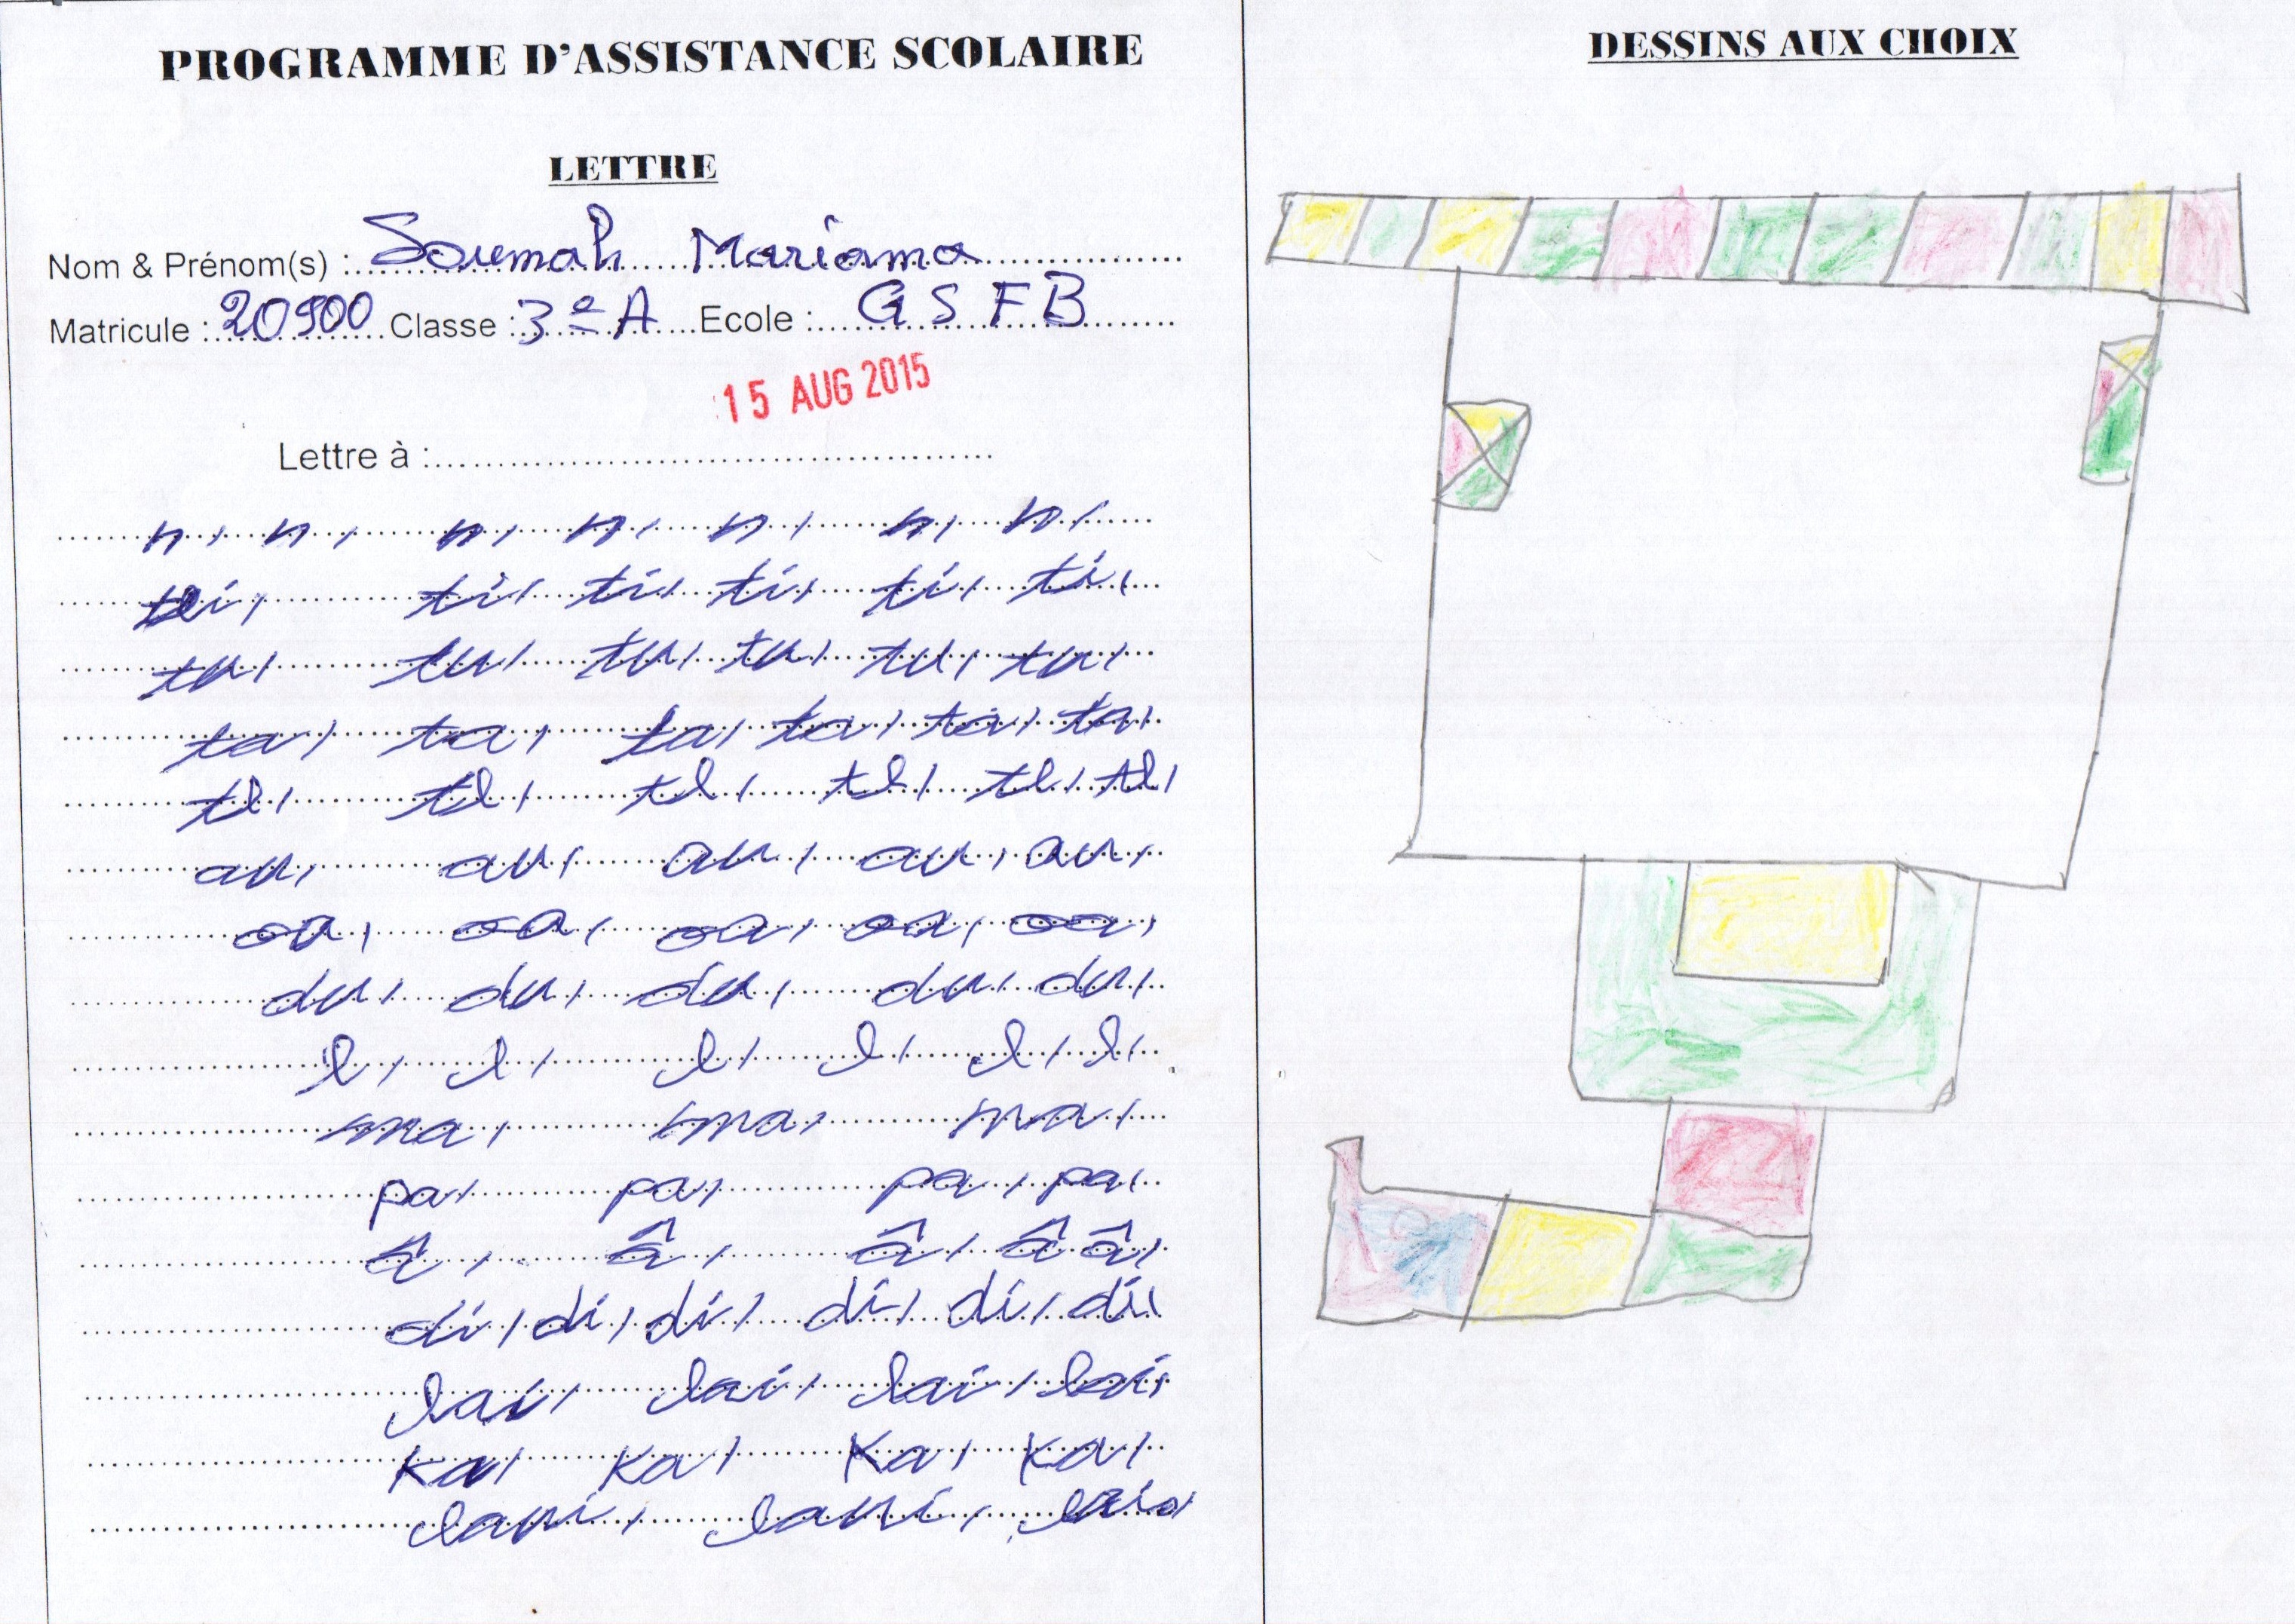 PROGRAMME D'ASSISTANCE SCOLAIRE
LETTRE
Nom & Prénom(s) : Soumah Mariama
Matricule : 20900 Classe : 3e A Ecole : G S F B
15 AUG 2015
Lettre à :
n, n, n, n, n, n, n,
ti, ti, ti, ti, ti,
tu, tu, tu, tu, tu, tu,
ta, ta, ta, ta, ta, ta,
tl, tl, tl, tl, tl, tl,
au, au, au, au, au,
oa, oa, oa, oa, oa,
du, du, du, du, du,
l, l, l, l, l, l,
ma, ma, ma,
pa, pa, pa, pa,
â, â, â, â, â,
di, di, di, di, di, di,
lai, lai, lai, lai,
Ka, Ka, Ka, Ka,
laui, laui,
DESSINS AUX CHOIX